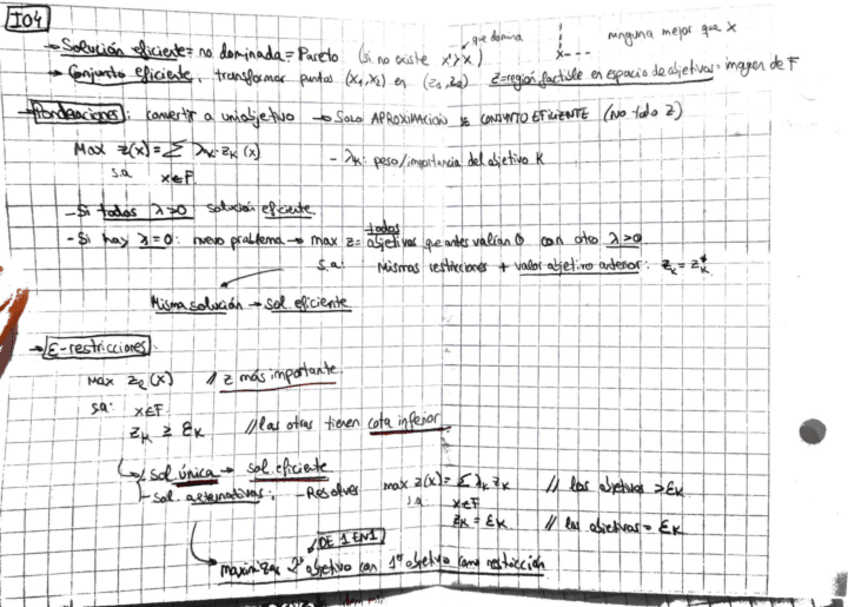 IO4
→ Solución eficiente = no dominada = Pareto (si no existe x'>x) que domina ninguna mejor que x
→ Conjunto eficiente, transformar puntos (x₁,x₂) en (z₁,z₂) z=región factible en espacio de objetivos = imagen de F
→ Ponderaciones: convertir a uniobjetivo → Solo APROXIMACIÓN CONJUNTO EFICIENTE (No todo z)
Max z(x) = ∑ λₖ·zₖ(x) - λₖ: peso/importancia del objetivo K
s.a x∈F
- Si todos λ>0 solución eficiente
- Si hay λ=0: nuevo problema → max z= todos objetivos que antes valían 0 con otro λ>0
s.a: Mismas restricciones + valor objetivo anterior: zₖ = zₖ*
Misma solución → sol eficiente
→ ε-restricciones:
Max zₑ(x) // z más importante
sa: x∈F
zₖ ≥ εₖ // las otras tienen cota inferior
sol única → sol. eficiente
sol. alternativas: - Resolver max z(x) = ∑ λₖ zₖ // los objetivos >εₖ
s.a: x∈F
zₖ = εₖ // los objetivos = εₖ
DE 1 EN 1
maximizar 2º objetivo con 1º objetivo como restricción